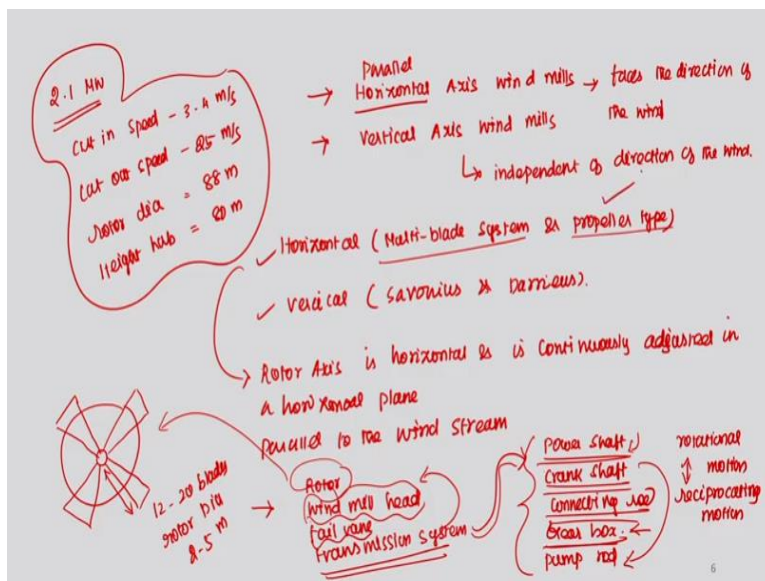 2.1 MW
Cut in speed - 3.4 m/s
Cut out speed - 25 m/s
rotor dia = 88 m
Height hub = 80 m
Parallel
→ Horizontal Axis wind mills → faces the direction of
the wind
→ Vertical Axis wind mills
↳ independent of direction of the wind.
✓ Horizontal (Multi-blade system & propeller type)
✓ Vertical (Savonius & Darrieus).
→ Rotor Axis is horizontal & is continuously adjusted in
a horizontal plane
parallel to the wind stream
12-20 blades
rotor dia
2-5 m
→ Rotor
wind mill head
tail vane
transmission system
Power shaft
Crank shaft
Connecting rod
Gear box
pump rod
rotational
↕ motion
reciprocating
motion
6